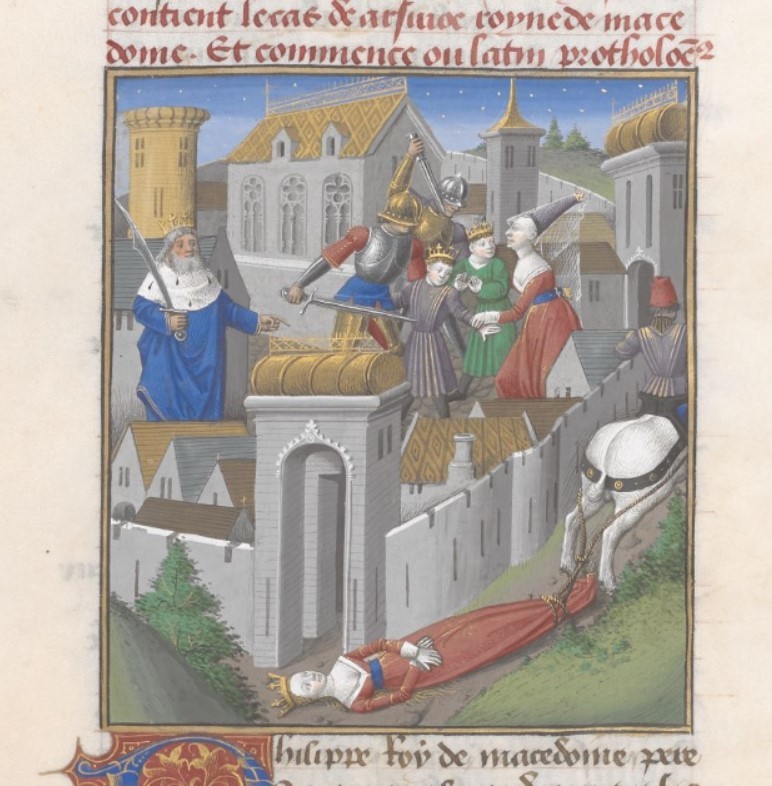 contient le cas de arsinoe royne de mace
dome. Et commence ou latin protholoe
Philippe Roy de macedoine pere